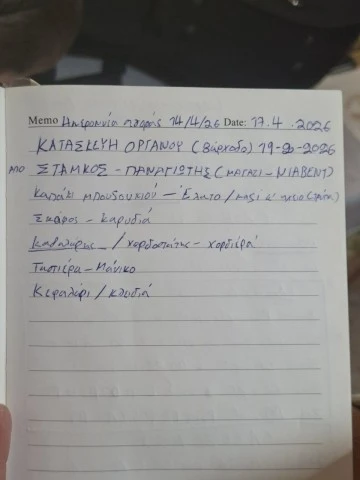 Memo Ημερομηνία αγοράς 14/4/26 Date: 17.4.2026
ΚΑΤΑΣΚΕΥΗ ΟΡΓΑΝΟΥ (Βάρκαδο) 19-2-2026
ΑΠΟ ΣΤΑΜΚΟΣ - ΠΑΝΑΓΙΩΤΗΣ (ΜΑΓΑΖΙ - ΝΙΑΒΕΝΤ)
Καπάκι μπουζουκιού - Έλατο / μαζί
Σκάφος - καρυδιά
καβαλάρης / χορδοστάτης - χορδιέρα
Ταστιέρα - Μάνικο
Κεφαλάρι / κλειδιά